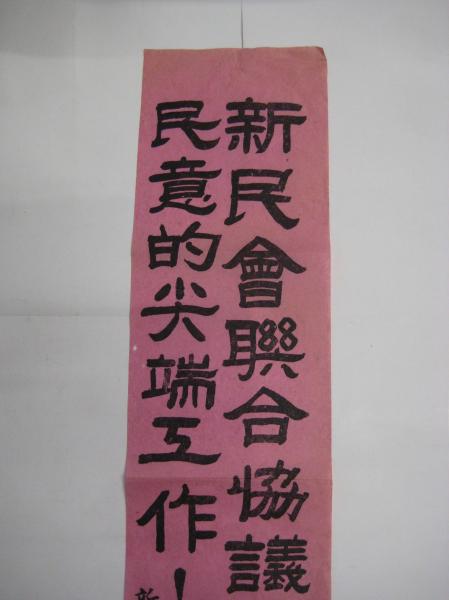 新民會聯合協議
民意的尖端工作！
新